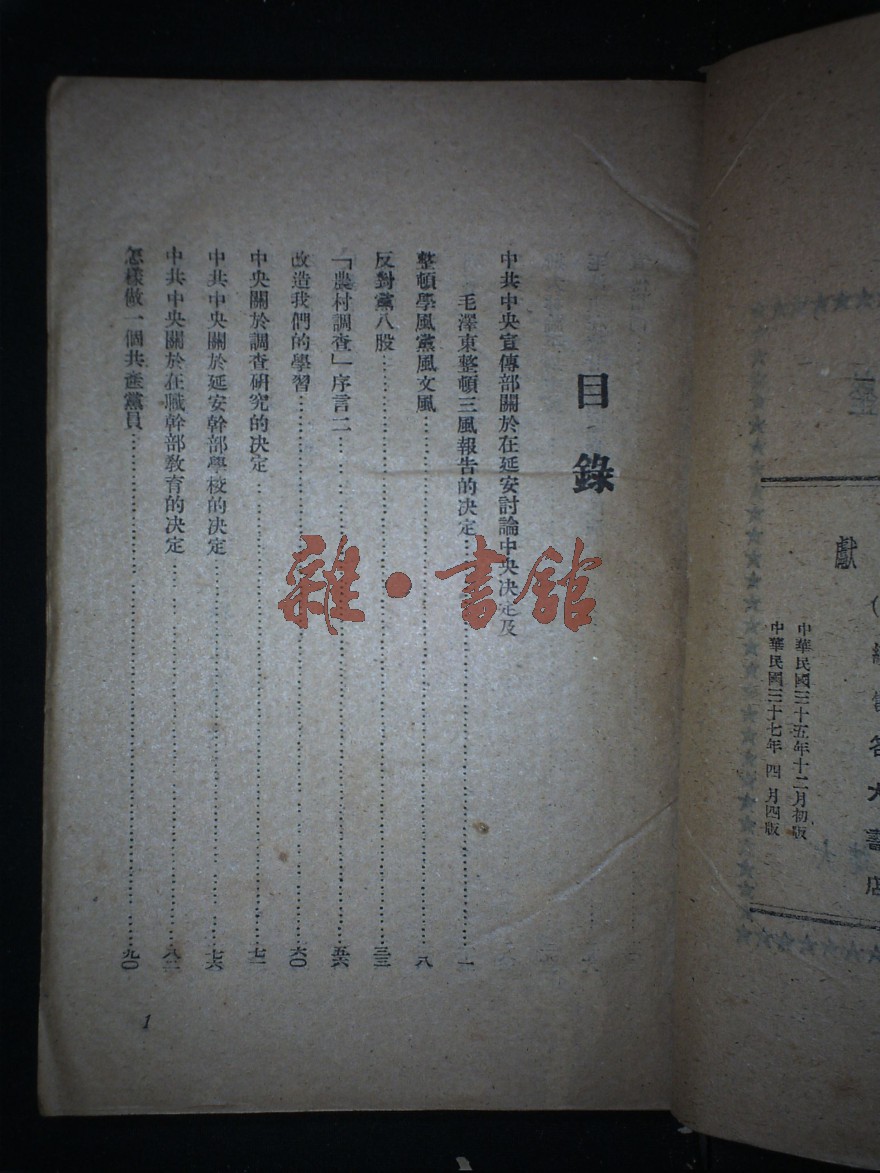 獻
中華民國三十五年十二月初版
中華民國三十七年 四 月四版
目錄
中共中央宣傳部關於在延安討論中央決定及
毛澤東整頓三風報告的決定……一
整頓學風黨風文風……八
反對黨八股……三三
「農村調查」序言二……五六
改造我們的學習……六〇
中央關於調查研究的決定……七一
中共中央關於延安幹部學校的決定……七六
中共中央關於在職幹部教育的決定……八二
怎樣做一個共產黨員……九〇
1
雜·書館